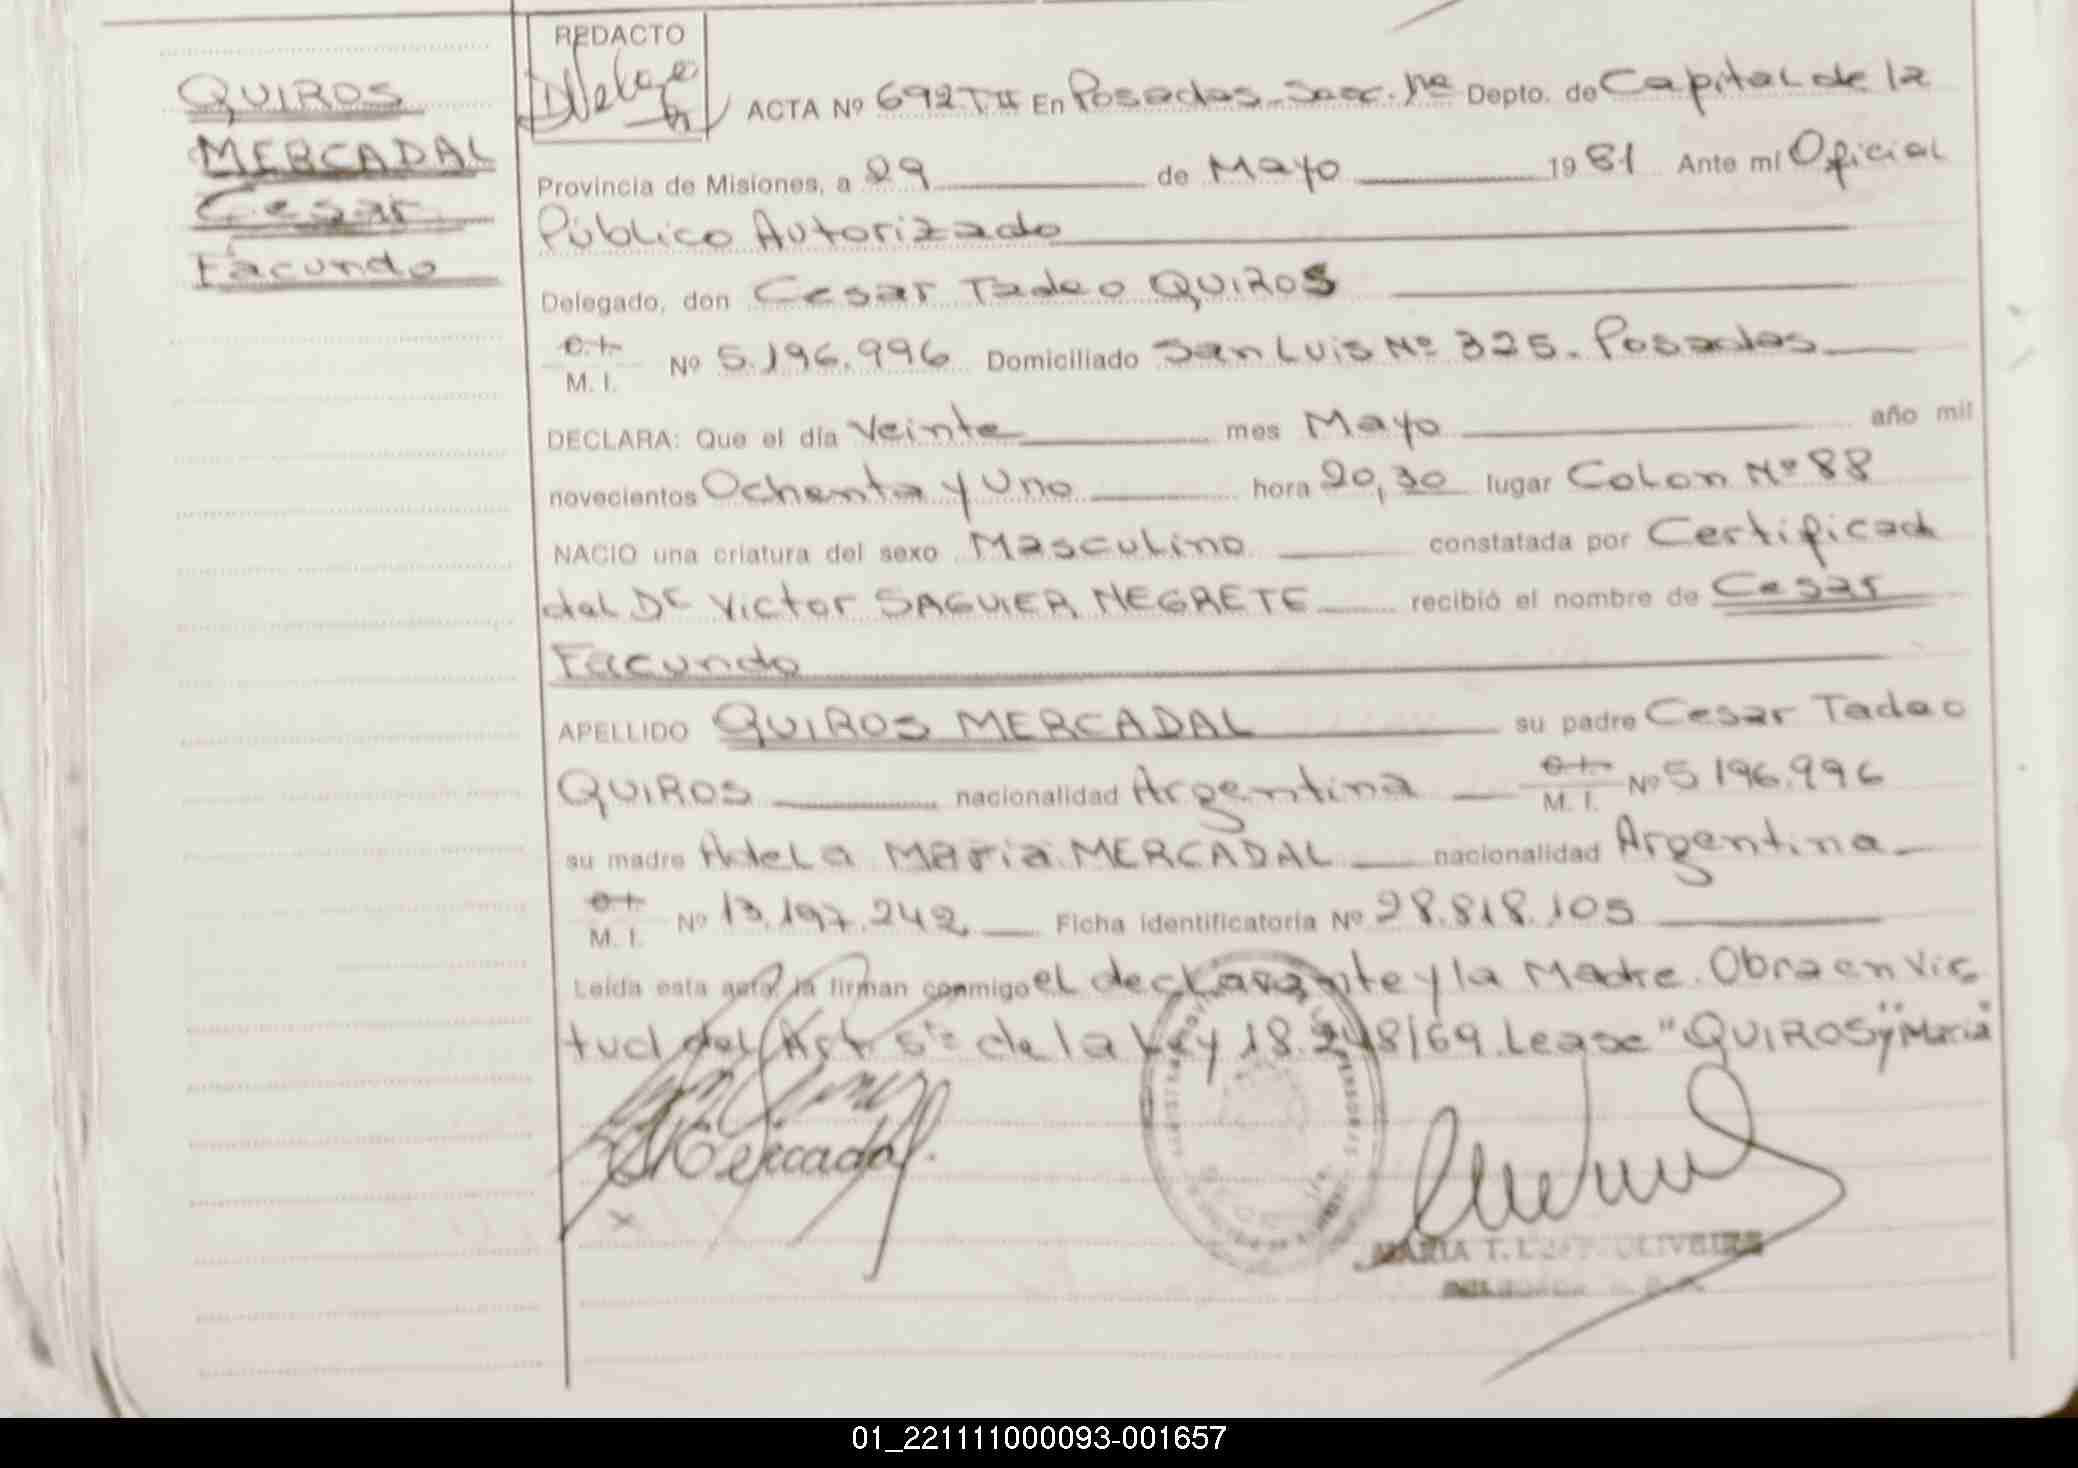 QUIROS
MERCADAL
Cesar
Facundo
REDACTO
ACTA Nº 692 TII En Posadas-Secc. 1ra Depto. de Capital de la
Provincia de Misiones, a 29 de Mayo 1981 Ante mí Oficial
Público Autorizado
Delegado, don Cesar Tadeo QUIROS
C.I. M. I. Nº 5.196.996 Domiciliado San Luis Nº 325. Posadas
DECLARA: Que el día Veinte mes Mayo año mil
novecientos Ochenta y Uno hora 20,30 lugar Colon Nº 88
NACIO una criatura del sexo Masculino constatada por Certificad
del Dr Victor SAGUIER NEGRETE recibió el nombre de Cesar
Facundo
APELLIDO QUIROS MERCADAL su padre Cesar Tadeo
QUIROS nacionalidad Argentina C.I. M. I. Nº 5 196.996
su madre Adela Maria MERCADAL nacionalidad Argentina
C.I. M. I. Nº 13.197.242 Ficha identificatoria Nº 28.818.105
Leída esta acta, la firman conmigo el declarante y la Madre. Obra en Vir
tud del Art. 5to de la Ley 18.248/69. Lease "QUIROS" y "Maria"
Mercadal.
MARIA T. OLIVEIRA
01_221111000093-001657